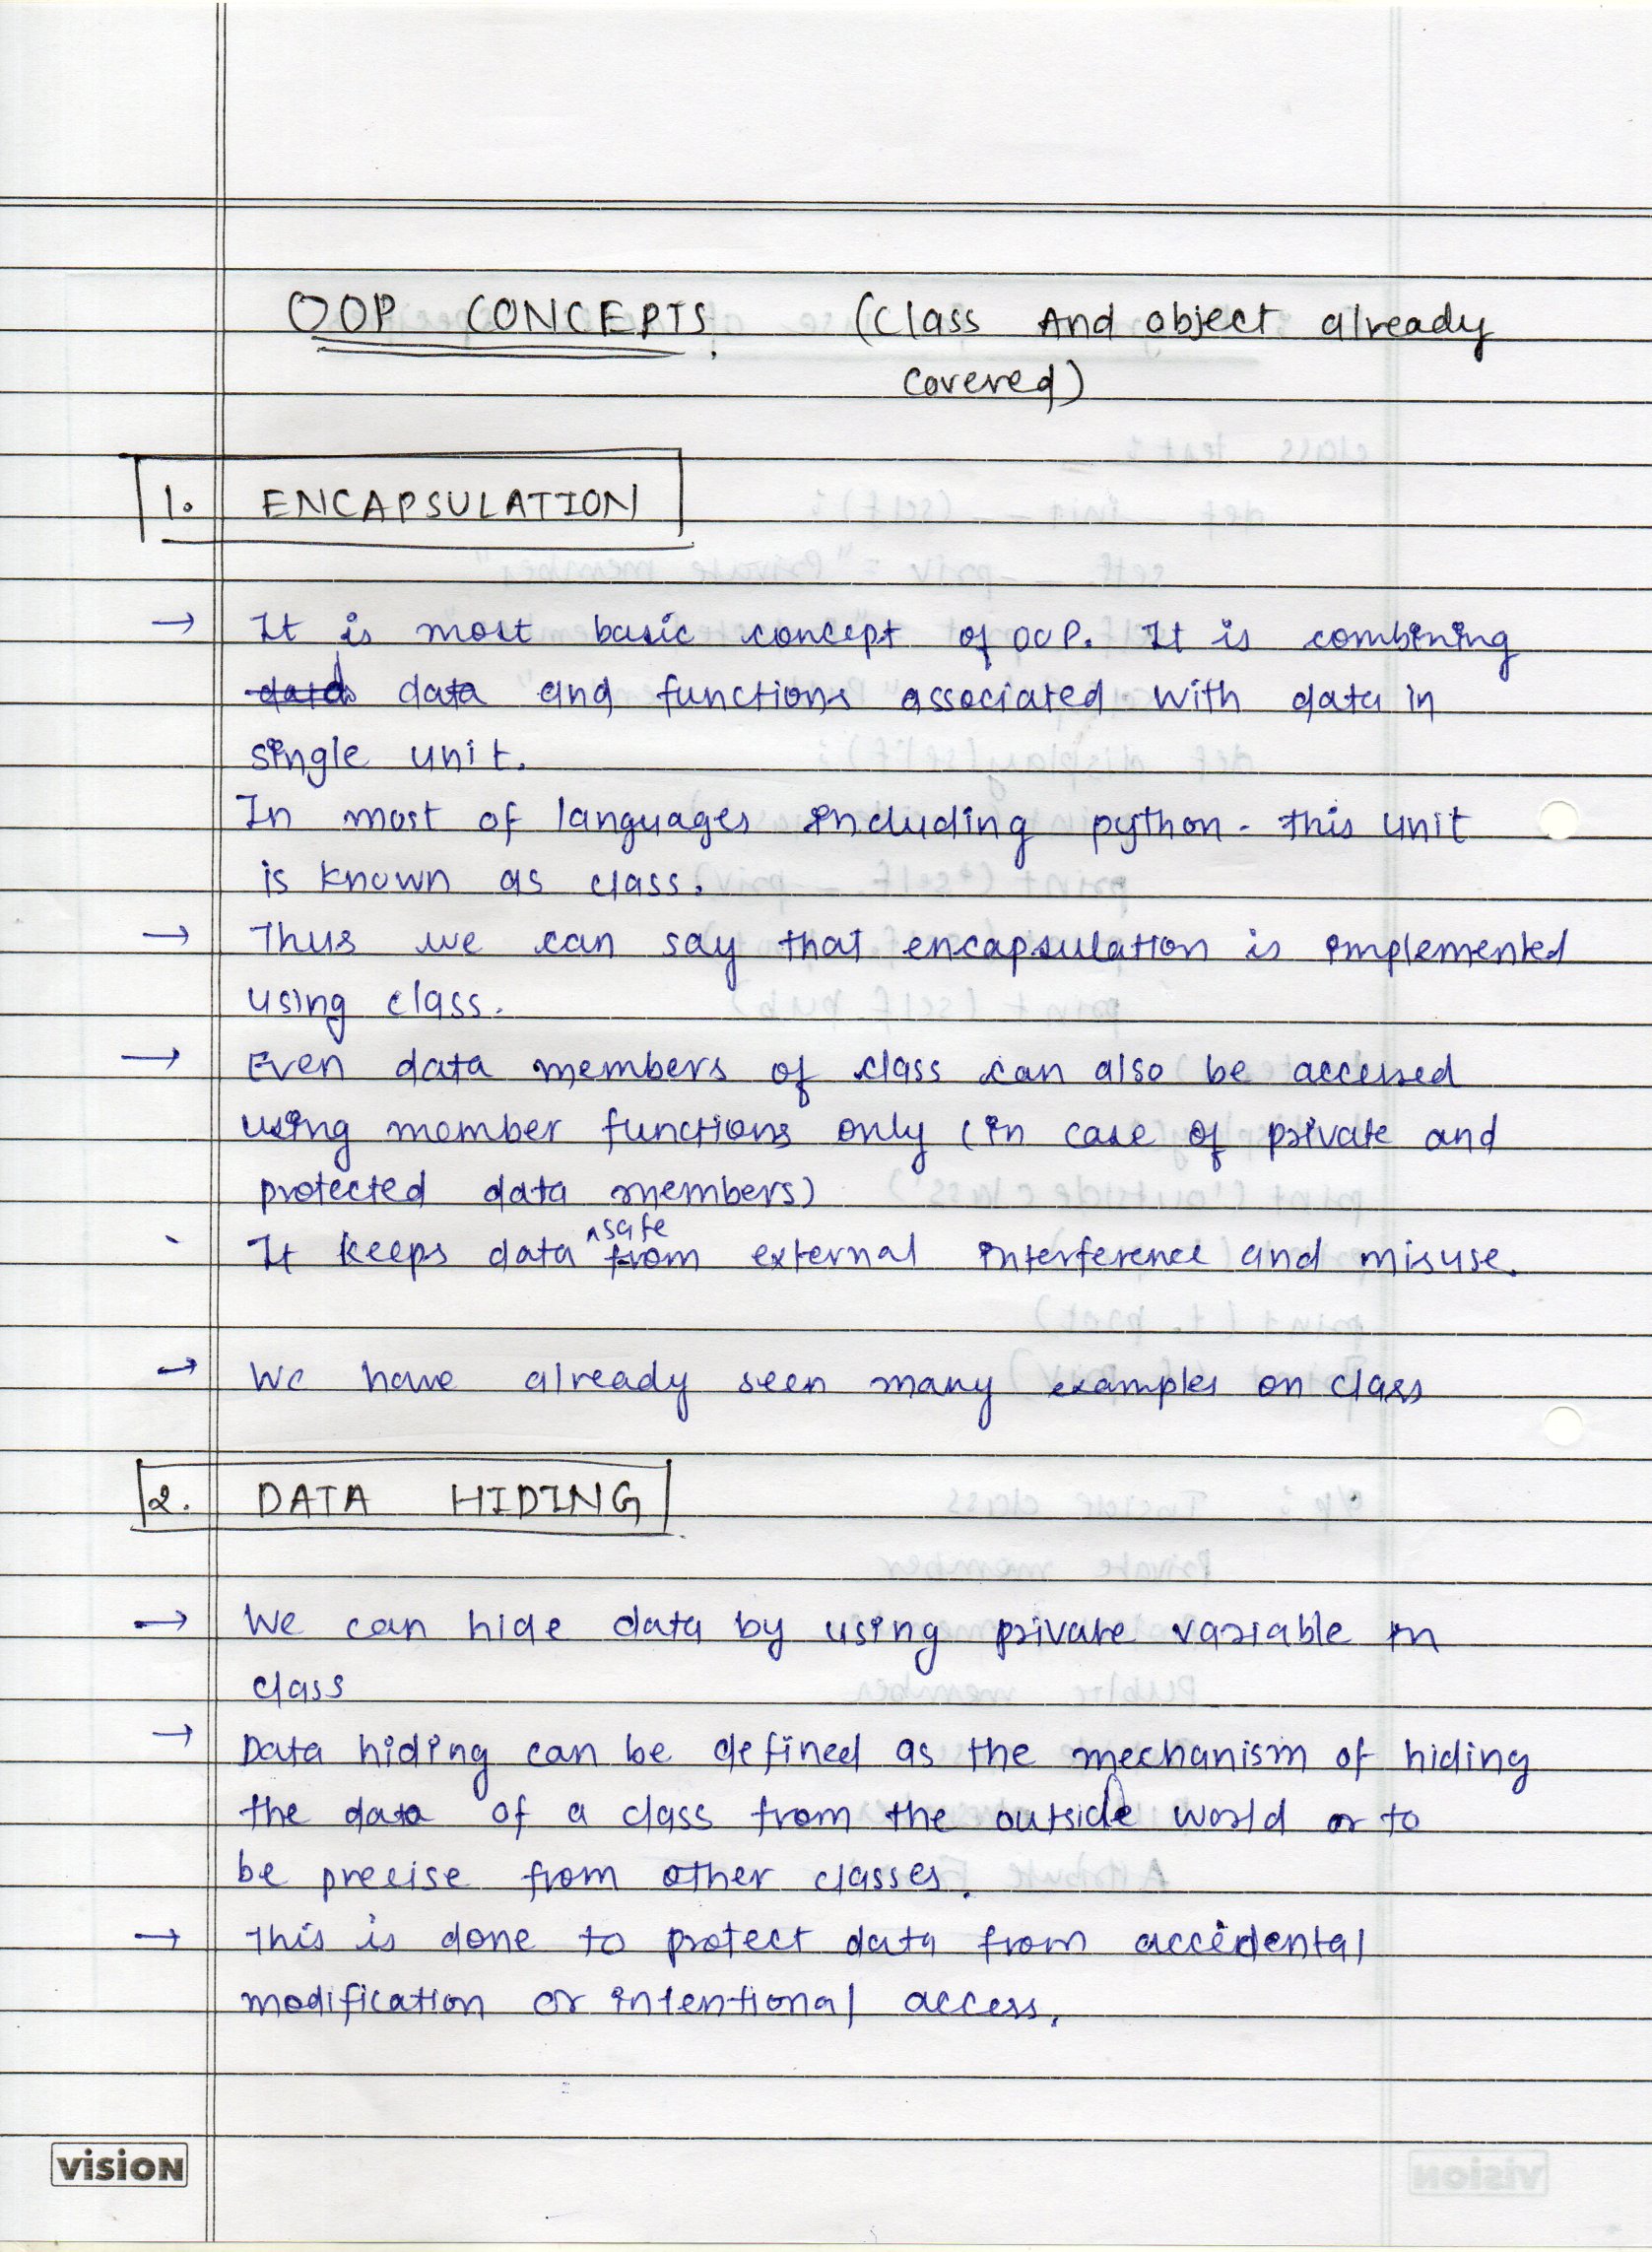 OOP CONCEPTS. (Class And object already
covered)
1. ENCAPSULATION
→ It is most basic concept of OOP. It is combining
data and functions associated with data in
single unit.
In most of languages including python - this unit
is known as class.
→ Thus we can say that encapsulation is implemented
using class.
→ Even data members of class can also be accessed
using member functions only (in case of private and
protected data members)
It keeps data ^safe from external interference and misuse.
→ We have already seen many examples on class
2. DATA HIDING
→ We can hide data by using private variable in
class
→ Data hiding can be defined as the mechanism of hiding
the data of a class from the outside world or to
be precise from other classes.
→ This is done to protect data from accidental
modification or intentional access.
vision